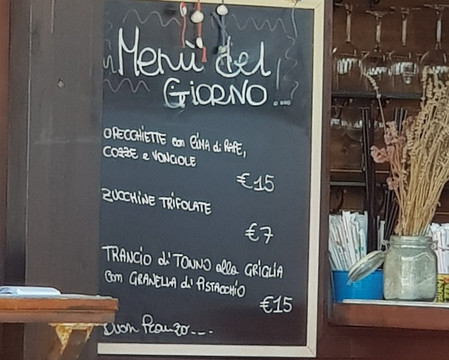 Menù del
GIORNO...
ORECCHIETTE con CIMA di RAPE,
COZZE e VONGOLE
€15
ZUCCHINE TRIFOLATE
€7
TRANCIO di TONNO alla GRIGLIA
con GRANELLA di PISTACCHIO
€15
Buon Pranzo...